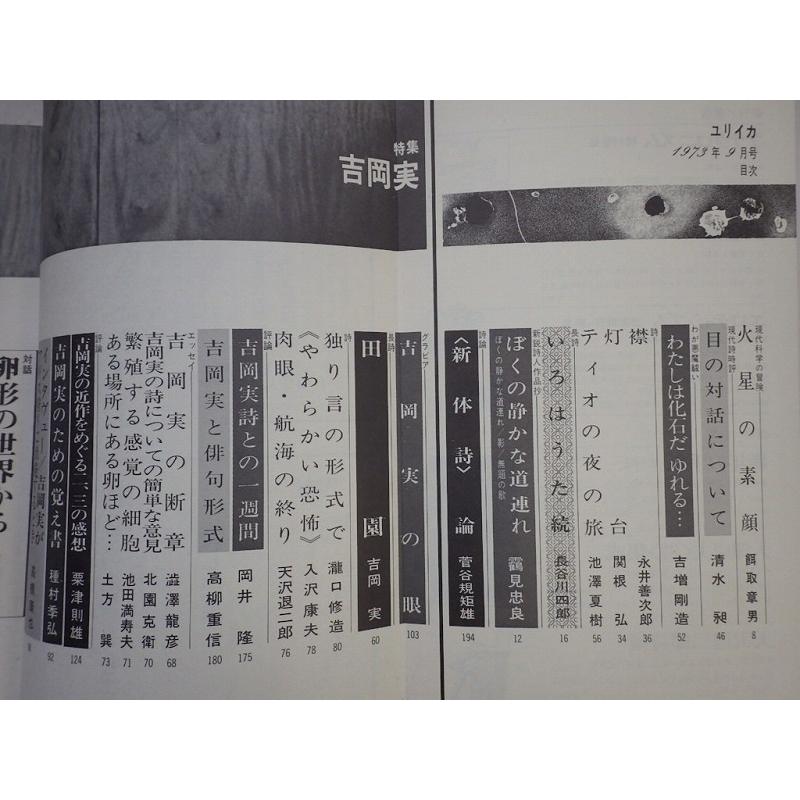 ユリイカ
1973年9月号
目次
現代科学の冒険
火星の素顔
餌取章男
8
現代詩時評
目の対話について
清水昶
46
わが悪魔祓い
わたしは化石だ ゆれる…
吉増剛造
52
詩
襟
永井善次郎
36
灯台
関根弘
34
ティオの夜の旅
池澤夏樹
56
長詩
いろはうた 続
長谷川四郎
16
新鋭詩人作品抄
ぼくの静かな道連れ
ぼくの静かな道連れ/影/無題の歌
鶴見忠良
12
詩論
〈新体詩〉論
菅谷規矩雄
194
特集
吉岡実
グラビア
吉岡実の眼
103
長詩
田園
吉岡実
60
詩
独り言の形式で
瀧口修造
80
《やわらかい恐怖》
入沢康夫
78
肉眼・航海の終り
天沢退二郎
76
評論
吉岡実詩との一週間
岡井隆
175
吉岡実と俳句形式
高柳重信
180
エッセイ
吉岡実の断章
澁澤龍彦
68
吉岡実の詩についての簡単な意見
北園克衛
70
繁殖する感覚の細胞
池田満寿夫
71
ある場所にある卵ほど…
土方巽
73
評論
吉岡実の近作をめぐる二、三の感想
粟津則雄
124
吉岡実のための覚え書
種村季弘
92
インタヴュー/吉岡実が
対話
卵形の世界から